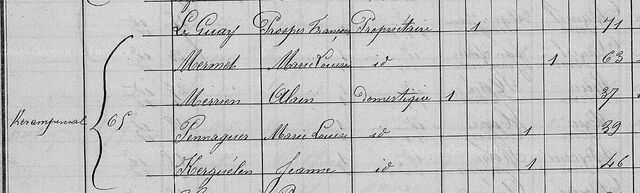 Le Guay Prosper François Propriétaire 1 71
Mermet Marie Louise id 1 63
Merrien Alain Domestique 1 37
Kerampennal 65
Pennaguer Marie Louise id 1 39
Kerguélen Jeanne id 1 46